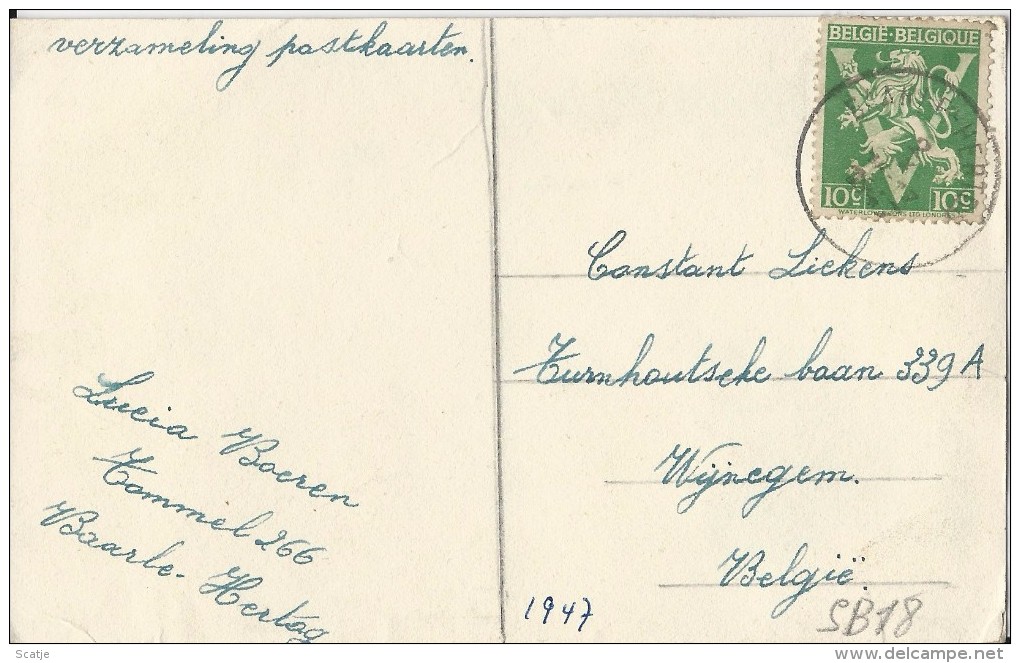 verzameling postkaarten.
Lucia Boeren
Tommel 266
Baarle-Hertog
BELGIË-BELGIQUE
10c 10c
WATERLOW & SONS LTD LONDRES
Constant Liekens
Turnhoutseke baan 339 A
Wÿnegem.
België.
1947
SB18
Scatje
delcampe.net